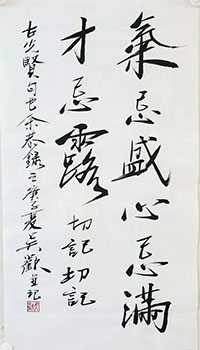 氣忌盛心忌滿
才忌露 切記切記
古先賢句也余恭錄之庚子夏吳歡並記